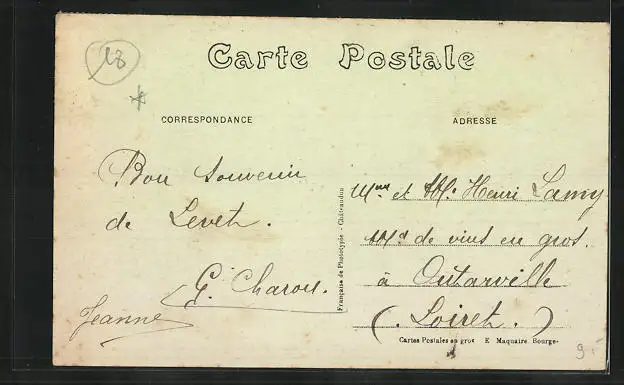 28
Carte Postale
CORRESPONDANCE
ADRESSE
Bon souvenir
de Levet.
G. Charon.
Jeanne
Mme et M. Henri Lamy
Md de vins en gros.
à Outarville
(Loiret.)
Française de Phototypie - Châteaudun
Cartes Postales en gros E Maquaire. Bourges
9.-